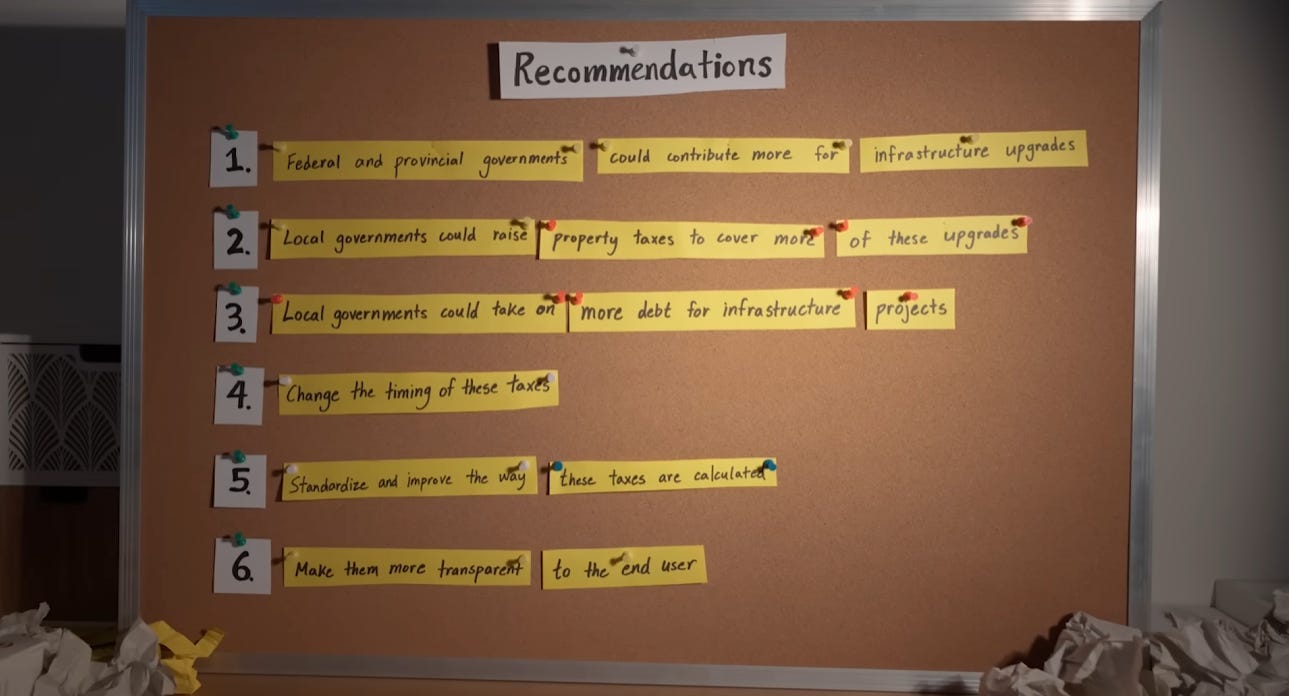 Recommendations
1. Federal and provincial governments could contribute more for infrastructure upgrades
2. Local governments could raise property taxes to cover more of these upgrades
3. Local governments could take on more debt for infrastructure projects
4. Change the timing of these taxes
5. Standardize and improve the way these taxes are calculated
6. Make them more transparent to the end user